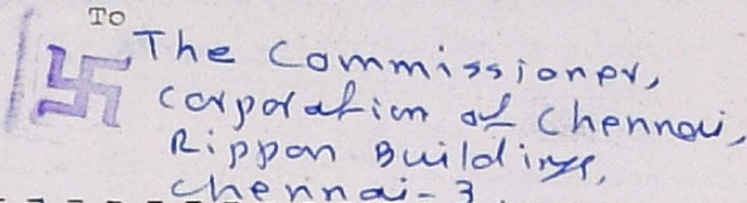 To
The Commissioner,
Corporation of Chennai,
Rippon Buildings,
Chennai-3